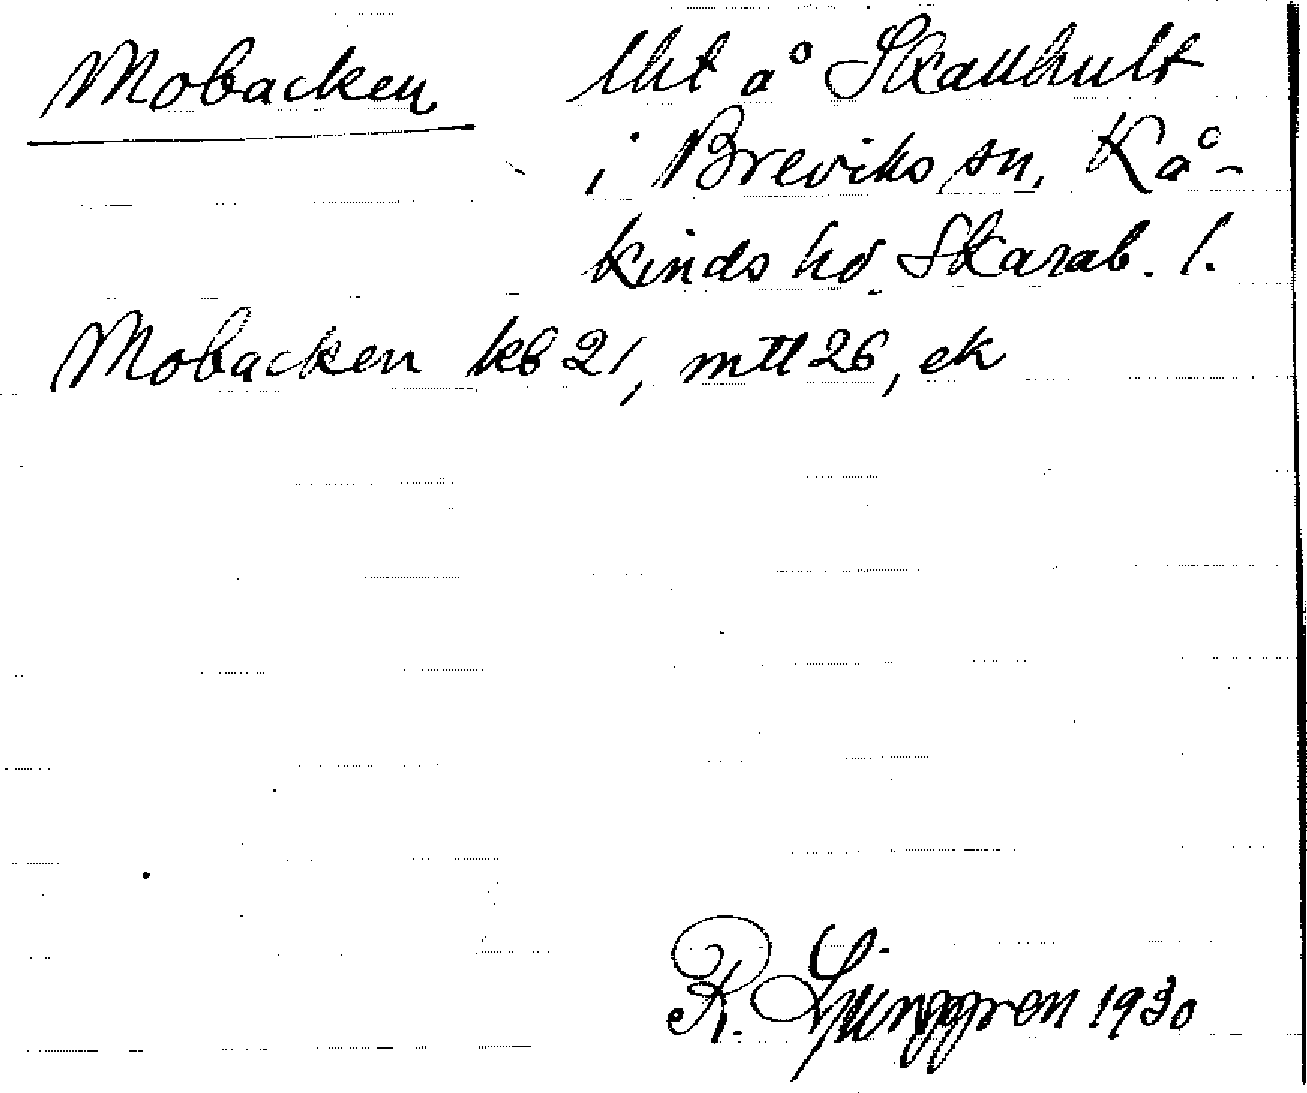 Mobacken lht å Skallhult
i Breviks sn, Kå-
kinds hd. Skarab. l.
Mobacken kb 21, mtl 26, ek
R. Ljunggren 1930